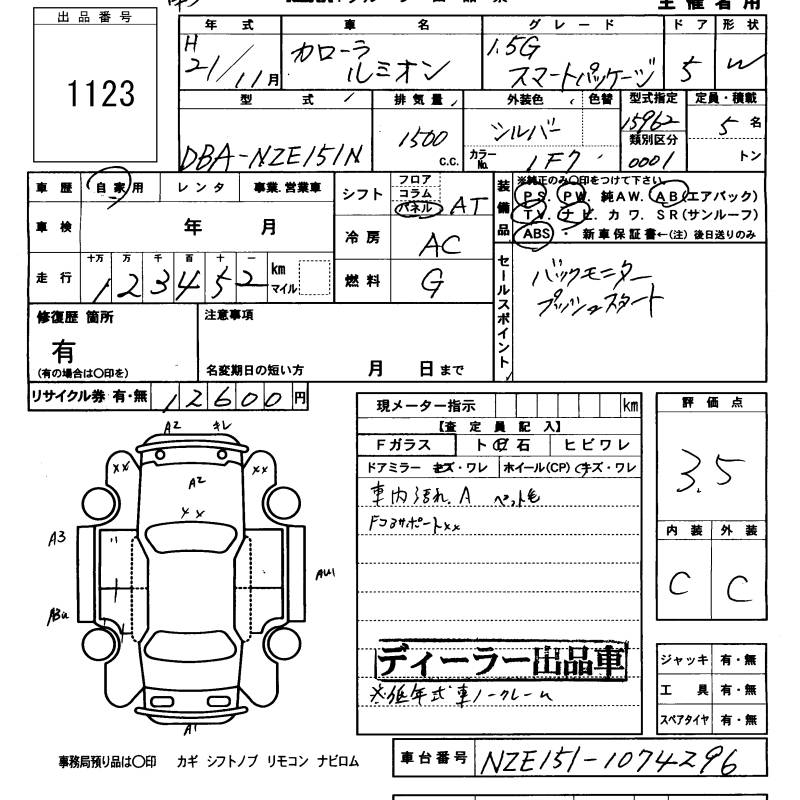 主催者用
出品番号
1123
年式 車名 グレード ドア 形状
H21/11月 カローラ ルミオン 1.5G スマートパッケージ 5 W
型式 排気量 外装色 色替 型式指定 定員・積載
DBA-NZE151N 1500 c.c. シルバー 15962 5名
類別区分
カラーNo. 1F7 0001 トン
車歴 自家用 レンタ 事業.営業車
シフト フロア コラム パネル AT
装備品 ※純正のみ〇印をつけて下さい。
PS. PW. 純AW. AB(エアバック)
TV. ナビ. カワ. SR(サンルーフ)
ABS ・ 新車保証書←(注)後日送りのみ
車検 年 月
冷房 AC
走行 十万 万 千 百 十 一
123452 km マイル
燃料 G
セールスポイント
バックモニター
プッシュスタート
修復歴 箇所 注意事項
有
(有の場合は〇印を) 名変期日の短い方 月 日まで
リサイクル券 有・無 12600円
現メーター指示 km
評価点
3.5
【査定員記入】
Fガラス ト飛石 ヒビワレ
ドアミラー キズ・ワレ ホイール(CP) キズ・ワレ
車内汚れ.A ペット毛
Fコアサポートxx
内装 外装
C C
A2 キレ
xx xx
A2
xx
A3
AW1
A1
ディーラー出品車
※低年式車ノークレーム
ジャッキ 有・無
工具 有・無
スペアタイヤ 有・無
事務局預り品は〇印 カギ シフトノブ リモコン ナビロム
車台番号 NZE151-1074296